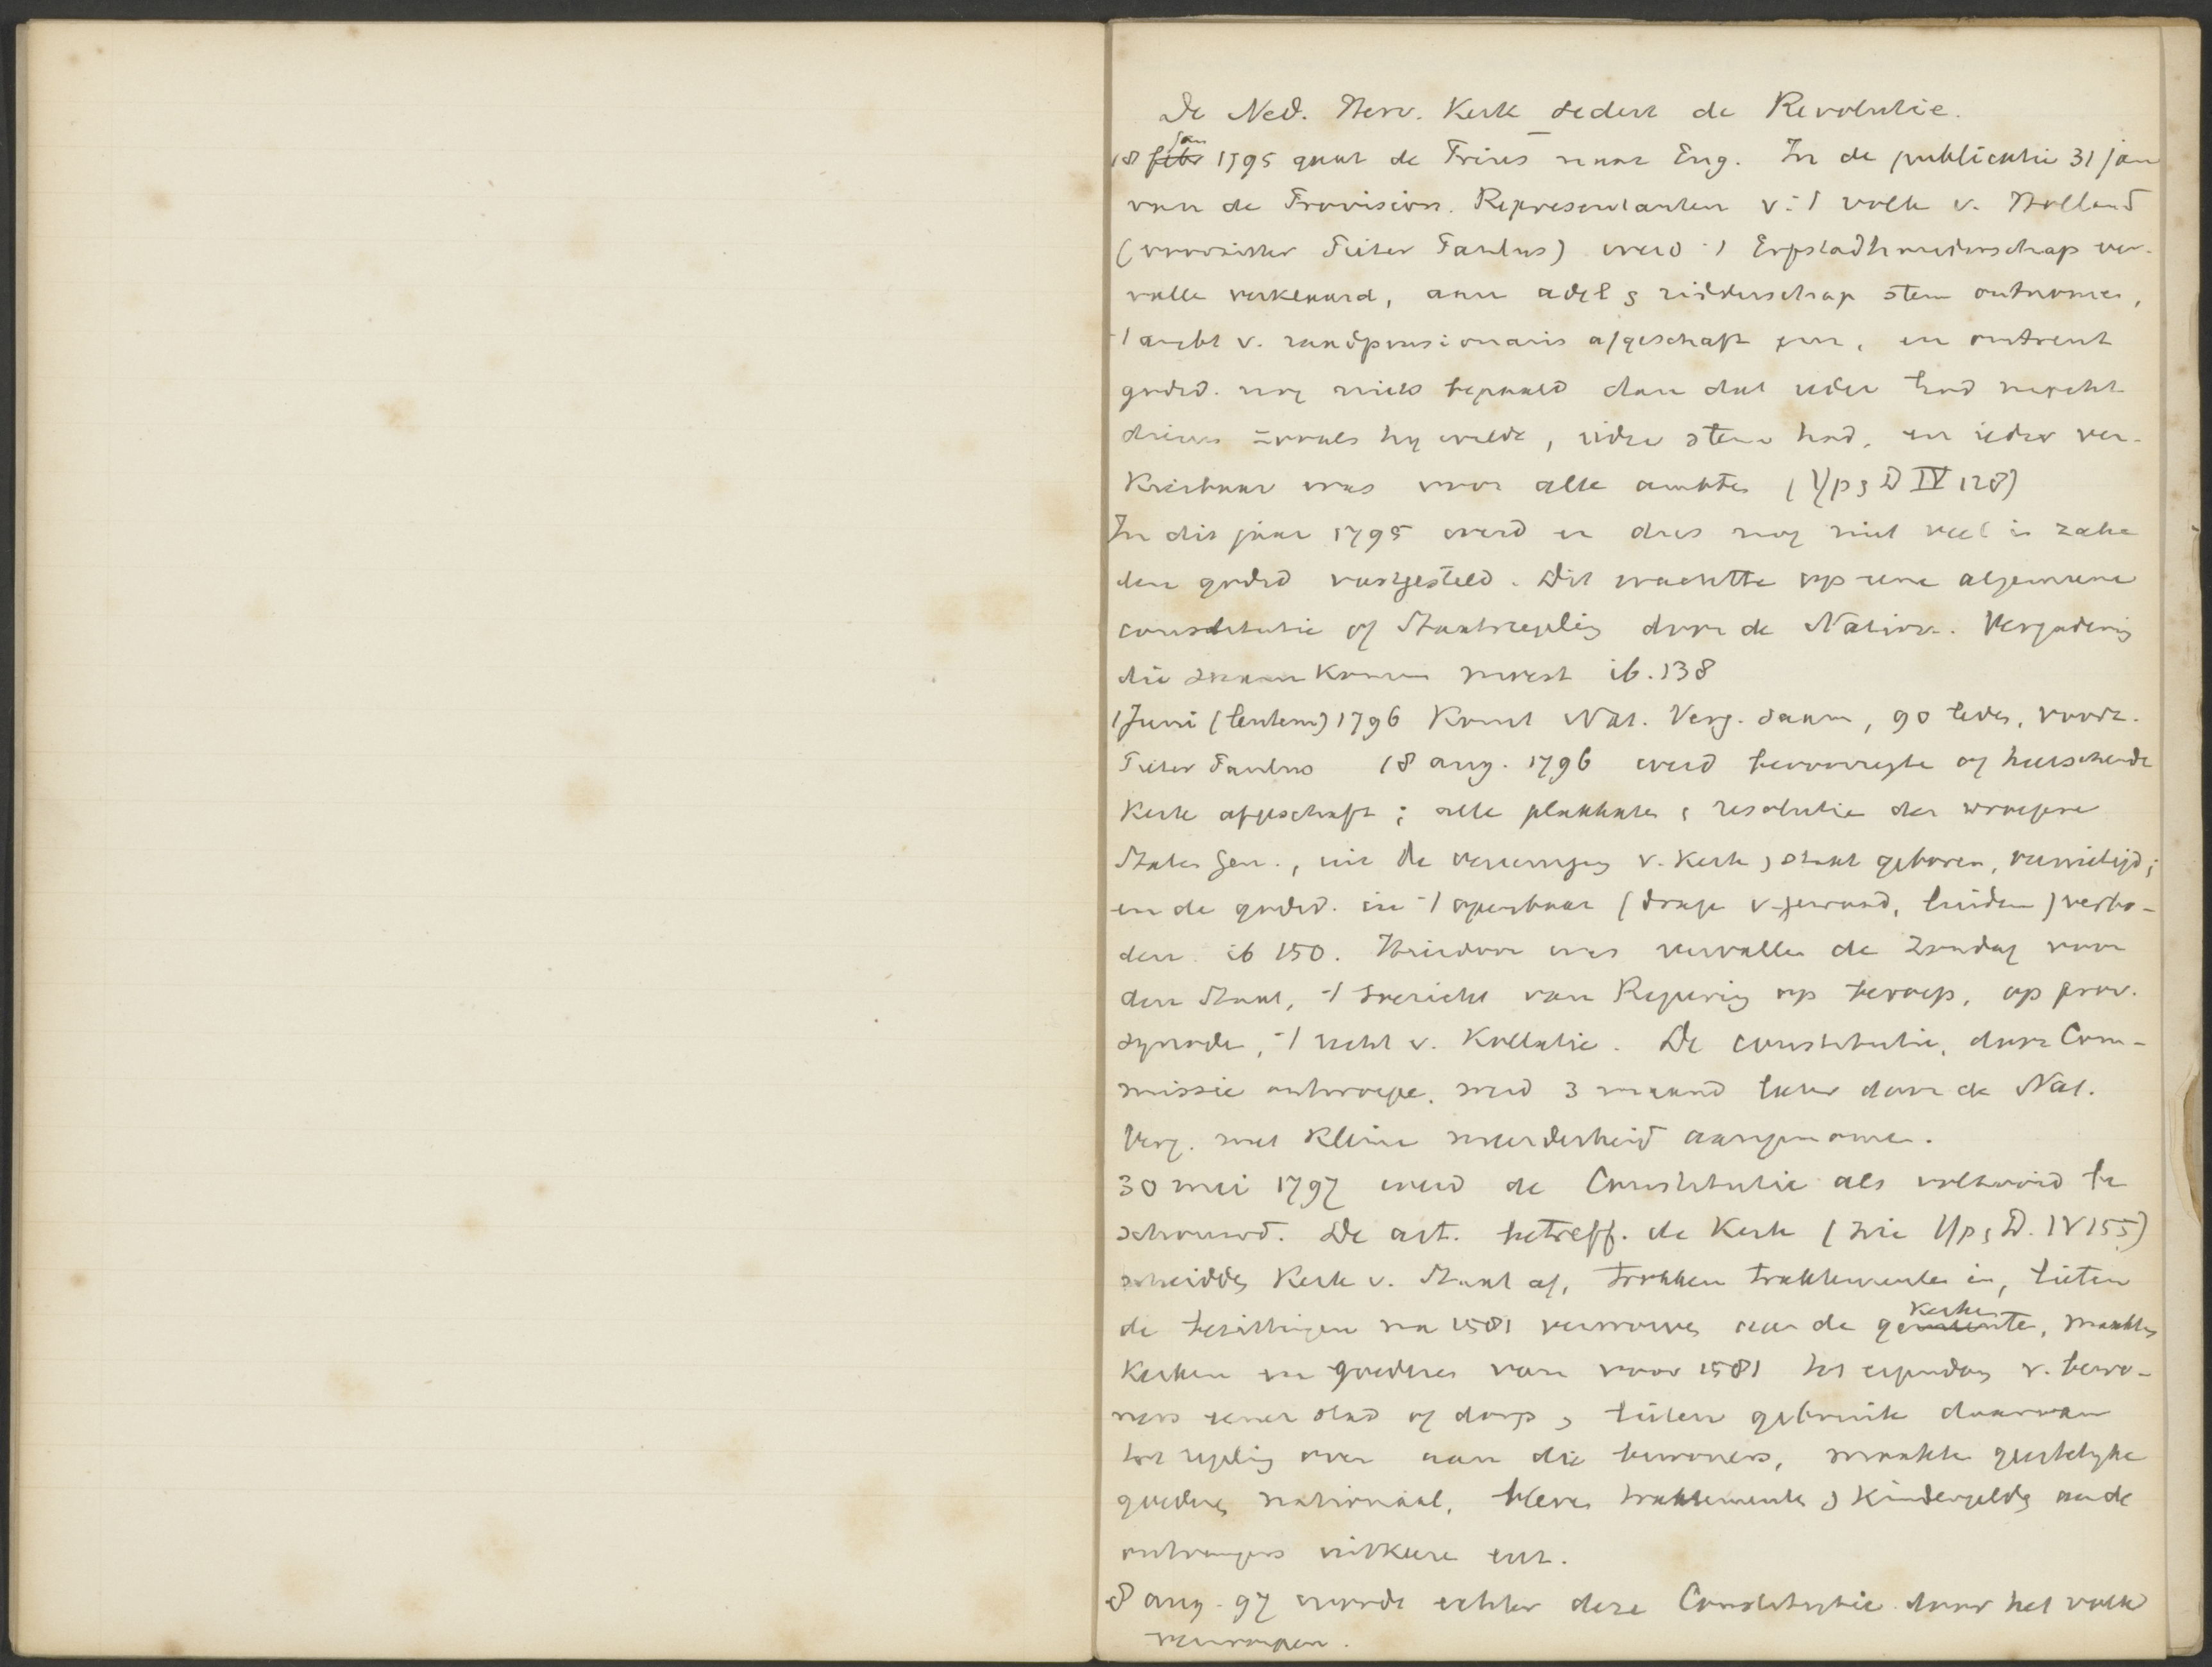 De Ned. Herv. Kerk sedert de Revolutie.
18 jan 1795 gaat de Prins naar Eng. In de publicatie 31 jan
van de Provision. Representanten v. 't volk v. Holland
(voorzitter Pieter Paulus) werd 't Erfstadhouderschap ver-
valle verklaard, aan adel & ridderschap stem ontnomen,
't ambt v. raadpensionaris afgeschaft enz., en omtrent
godsd. nog niets bepaald dan dat ieder God mocht
dienen zooals hij wilde, ieder stem had, en ieder ver-
kiesbaar was voor alle ambten (Yp & D IV 128)
In dit jaar 1795 werd er dus nog niet veel in zake
den godsd vastgesteld. Dit wachtte op eene algemeene
constitutie of Staatsregeling door de Nation. Vergadering
die samenkomen moest ib. 138
1 Juni 1796 komt Nat. Verg. saam, 90 leden, voorz.
Pieter Paulus 18 aug. 1796 werd bevoorregte of heerschende
Kerk afgeschaft; alle plakkaten & resolutie der vroegere
Staten Gen., uit de vereeniging v. Kerk & staat geboren, vernietigd;
en de godsd. in 't openbaar (drage v. gewaad, luiden) verbo-
den. ib 150. Hierdoor was vervallen de Zondag voor
den Staat, 't toezicht van Regering op beroep, op prov.
synode, 't recht v. Kollatie. De constitutie, door Com-
missie ontworpe, werd 3 maand later door de Nat.
Verg. met kleine meerderheid aangenomen.
30 mei 1797 werd de Constitutie als voltooid be
schouwd. De art. betreff. de Kerk (zie Yp & D. IV 155)
scheidden Kerk v. Staat af, trokken traktementen in, lieten
de bezittingen na 1581 verworven aan de kerke, maakten
Kerken en goederen van voor 1581 tot eigendom v. bewo-
ners eener stad of dorp & lieten gebruik daarvan
ter regeling over aan die bewoners, maakte geestelijke
goederen nationaal, bleven traktementen & kindergelden aan de
ontvangers uitkeere enz.
8 aug. 97 werde echter deze Constitutie door het volk
verworpen.